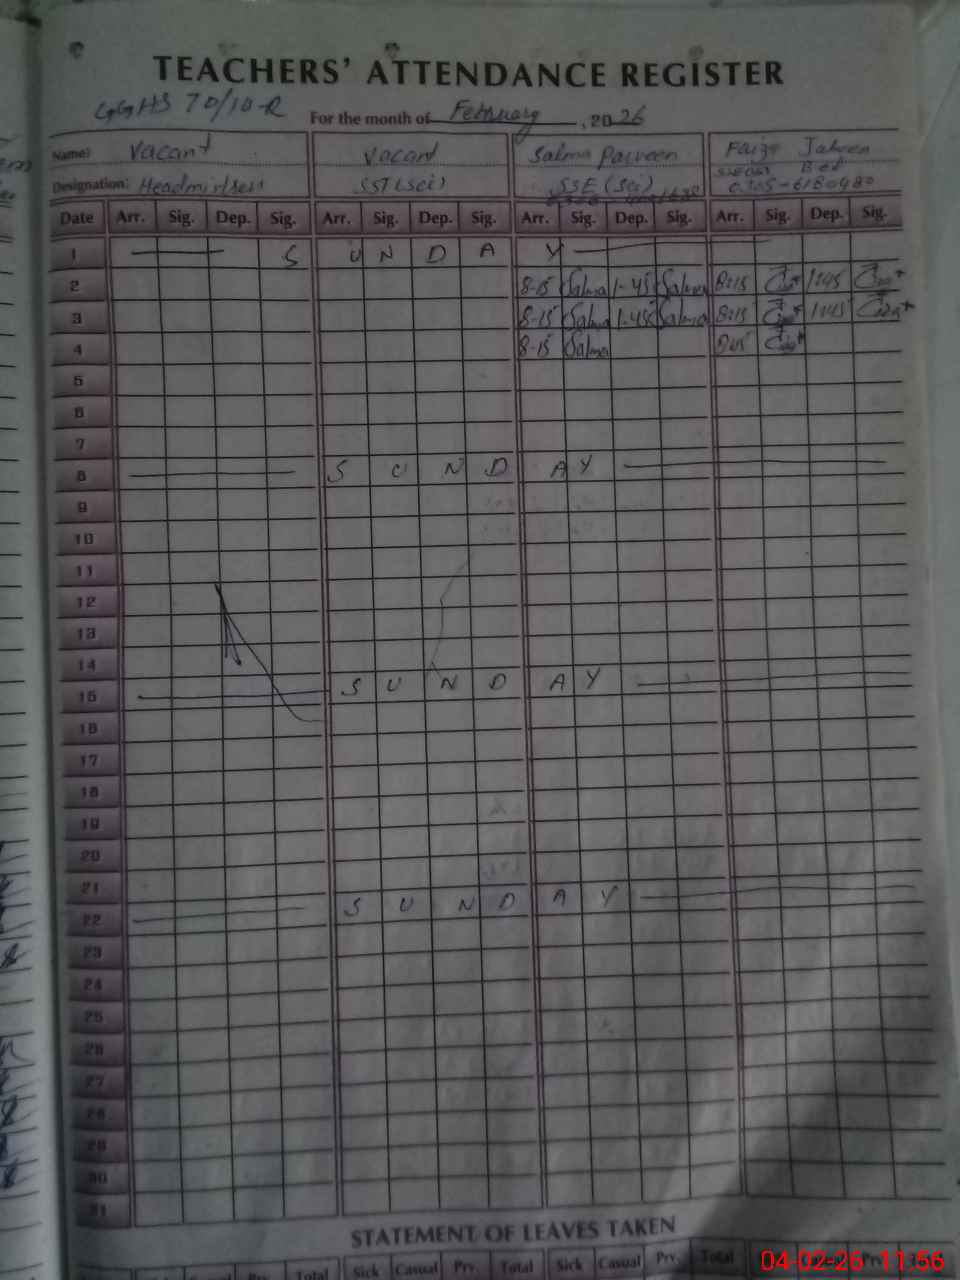 TEACHERS' ATTENDANCE REGISTER
GGHS 70/10-R
For the month of February, 2026
Name: Vacant Vacant Salma Parveen Faiza Jabeen
Designation: Headmistress SST(Sci) SSE (Sci) 0305-6180980
Date Arr. Sig. Dep. Sig. Arr. Sig. Dep. Sig. Arr. Sig. Dep. Sig. Arr. Sig. Dep. Sig.
1 S U N D A Y
2 8-15 Salma 1-45 Salma 8:15 1:45
3 8-15 Salma 1-45 Salma 8:15 1:45
4 8-15 Salma
5
6
7
8 S U N D A Y
9
10
11
12
13
14
15 S U N D A Y
16
17
18
19
20
21
22 S U N D A Y
23
24
25
26
27
28
29
30
31
STATEMENT OF LEAVES TAKEN
Casual Prv. Total Sick Casual Prv. Total Sick Casual Prv. Total Prv.
04-02-26 11:56